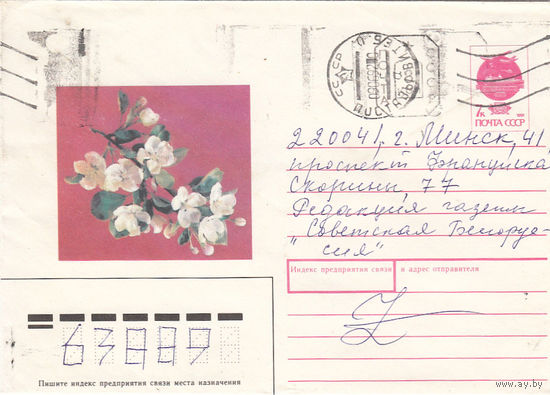 СССР
7к
ПОЧТА СССР
220041, г. Минск, 41
проспект Франциска
Скорины, 77
Редакция газеты
"Советская Белорус-
сия"
Индекс предприятия связи и адрес отправителя
Пишите индекс предприятия связи места назначения
© www.ay.by